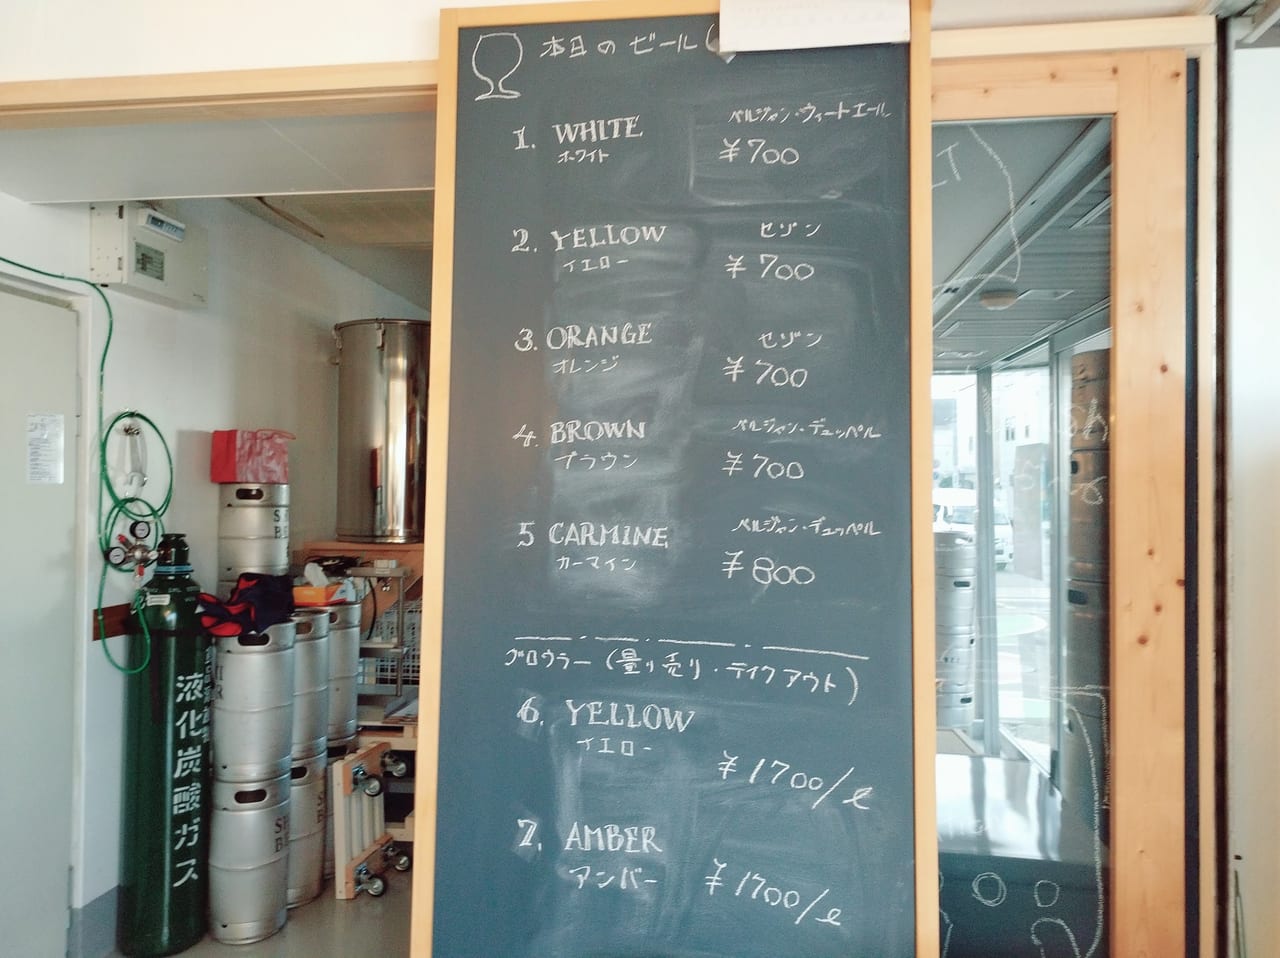 本日のビール(
1. WHITE ベルジャン・ウィートエール
ホワイト ¥700
2. YELLOW セゾン
イエロー ¥700
3. ORANGE セゾン
オレンジ ¥700
4. BROWN ベルジャン・デュッベル
ブラウン ¥700
5 CARMINE ベルジャン・デュッベル
カーマイン ¥800
グロウラー(量り売り・テイクアウト)
6. YELLOW
イエロー
¥1700/ℓ
7. AMBER
アンバー ¥1700/ℓ
液化炭酸ガス